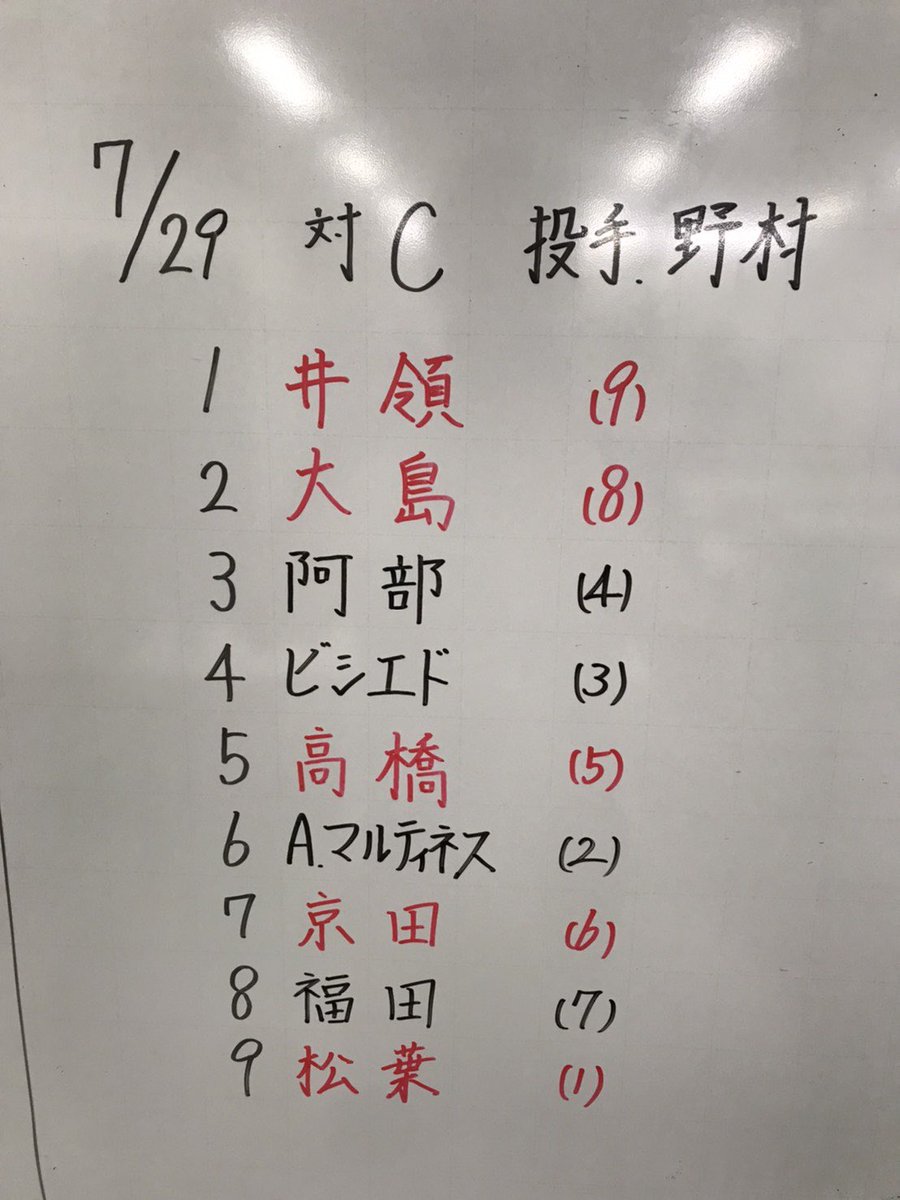 7/29 対C 投手.野村
1 井領 (9)
2 大島 (8)
3 阿部 (4)
4 ビシエド (3)
5 高橋 (5)
6 A.マルティネス (2)
7 京田 (6)
8 福田 (7)
9 松葉 (1)